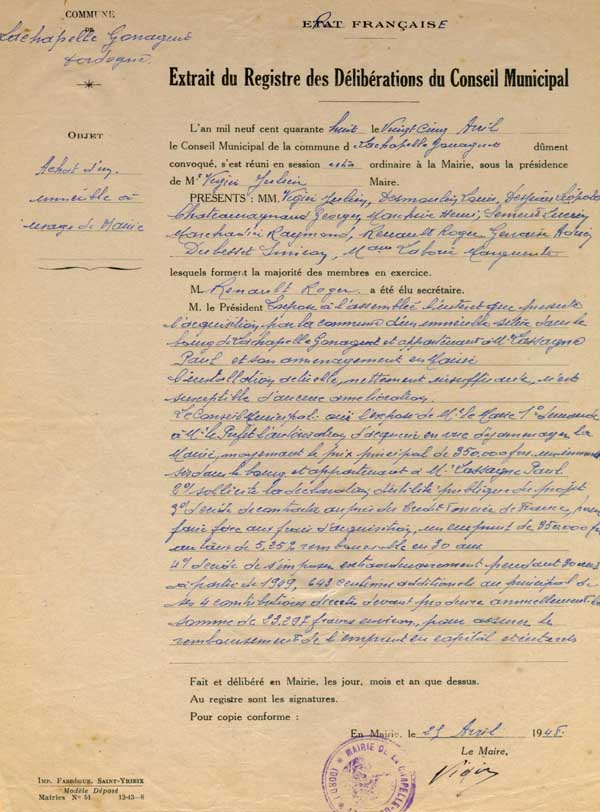 COMMUNE
DE
Lachapelle Gonaguet
Dordogne
OBJET
Achat d'un
immeuble à
usage de Mairie
ETAT FRANÇAISE
Extrait du Registre des Délibérations du Conseil Municipal
L'an mil neuf cent quarante huit le Vingt Cinq Avril
le Conseil Municipal de la commune d Lachapelle Gonaguet dûment
convoqué, s'est réuni en session extra ordinaire à la Mairie, sous la présidence
de Mr Vigier Julien Maire.
PRESENTS : MM. Vigier Julien, Desmoulin Louis, Despian Léopold
Chateaureynaud Georges, Marchive Henri, Lucien
Marchadié Raymond, Renault Roger,
Dubesset, Mme Laborie Marguerite
lesquels forment la majorité des membres en exercice.
M. Renault Roger a été élu secrétaire.
M. le Président expose à l'assemblée l'intérêt que présente
l'acquisition par la commune d'un immeuble situé dans le
bourg de Lachapelle Gonaguet et appartenant à Mr Lassaigne
Paul et son aménagement en Mairie
l'installation actuelle, nettement insuffisante, n'est
susceptible d'aucune amélioration.
Le Conseil Municipal ouï l'exposé de Mr le Maire 1° demande
à Mr le Préfet l'autorisation d'acquérir en vue d'y aménager la
Mairie, moyennant le prix principal de 350,000 frs un immeuble
sis dans le bourg et appartenant à Mr Lassaigne Paul.
2° sollicite la déclaration d'utilité publique du projet
3° décide de contracter auprès du Crédit Foncier de France, pour
faire face aux frais d'acquisition, un emprunt de 350,000 frs
au taux de 5,25 % remboursable en 30 ans
4° décide de s'imposer extraordinairement pendant 30 ans
à partir de 1949, 643 centimes additionels au principal de
ses 4 contributions directes devant produire annuellement la
somme de 23,297 francs environ, pour assurer le
remboursement de l'emprunt en capital et intérêts
Fait et délibéré en Mairie, les jour, mois et an que dessus.
Au registre sont les signatures.
Pour copie conforme :
En Mairie, le 25 Avril 1948.
Le Maire,
Vigier
MAIRIE DE LA CHAPELLE
(DORD
IMP. FABRÈGUE, SAINT-YRIEIX
Modèle Déposé
Mairies N° 51 12-43-8